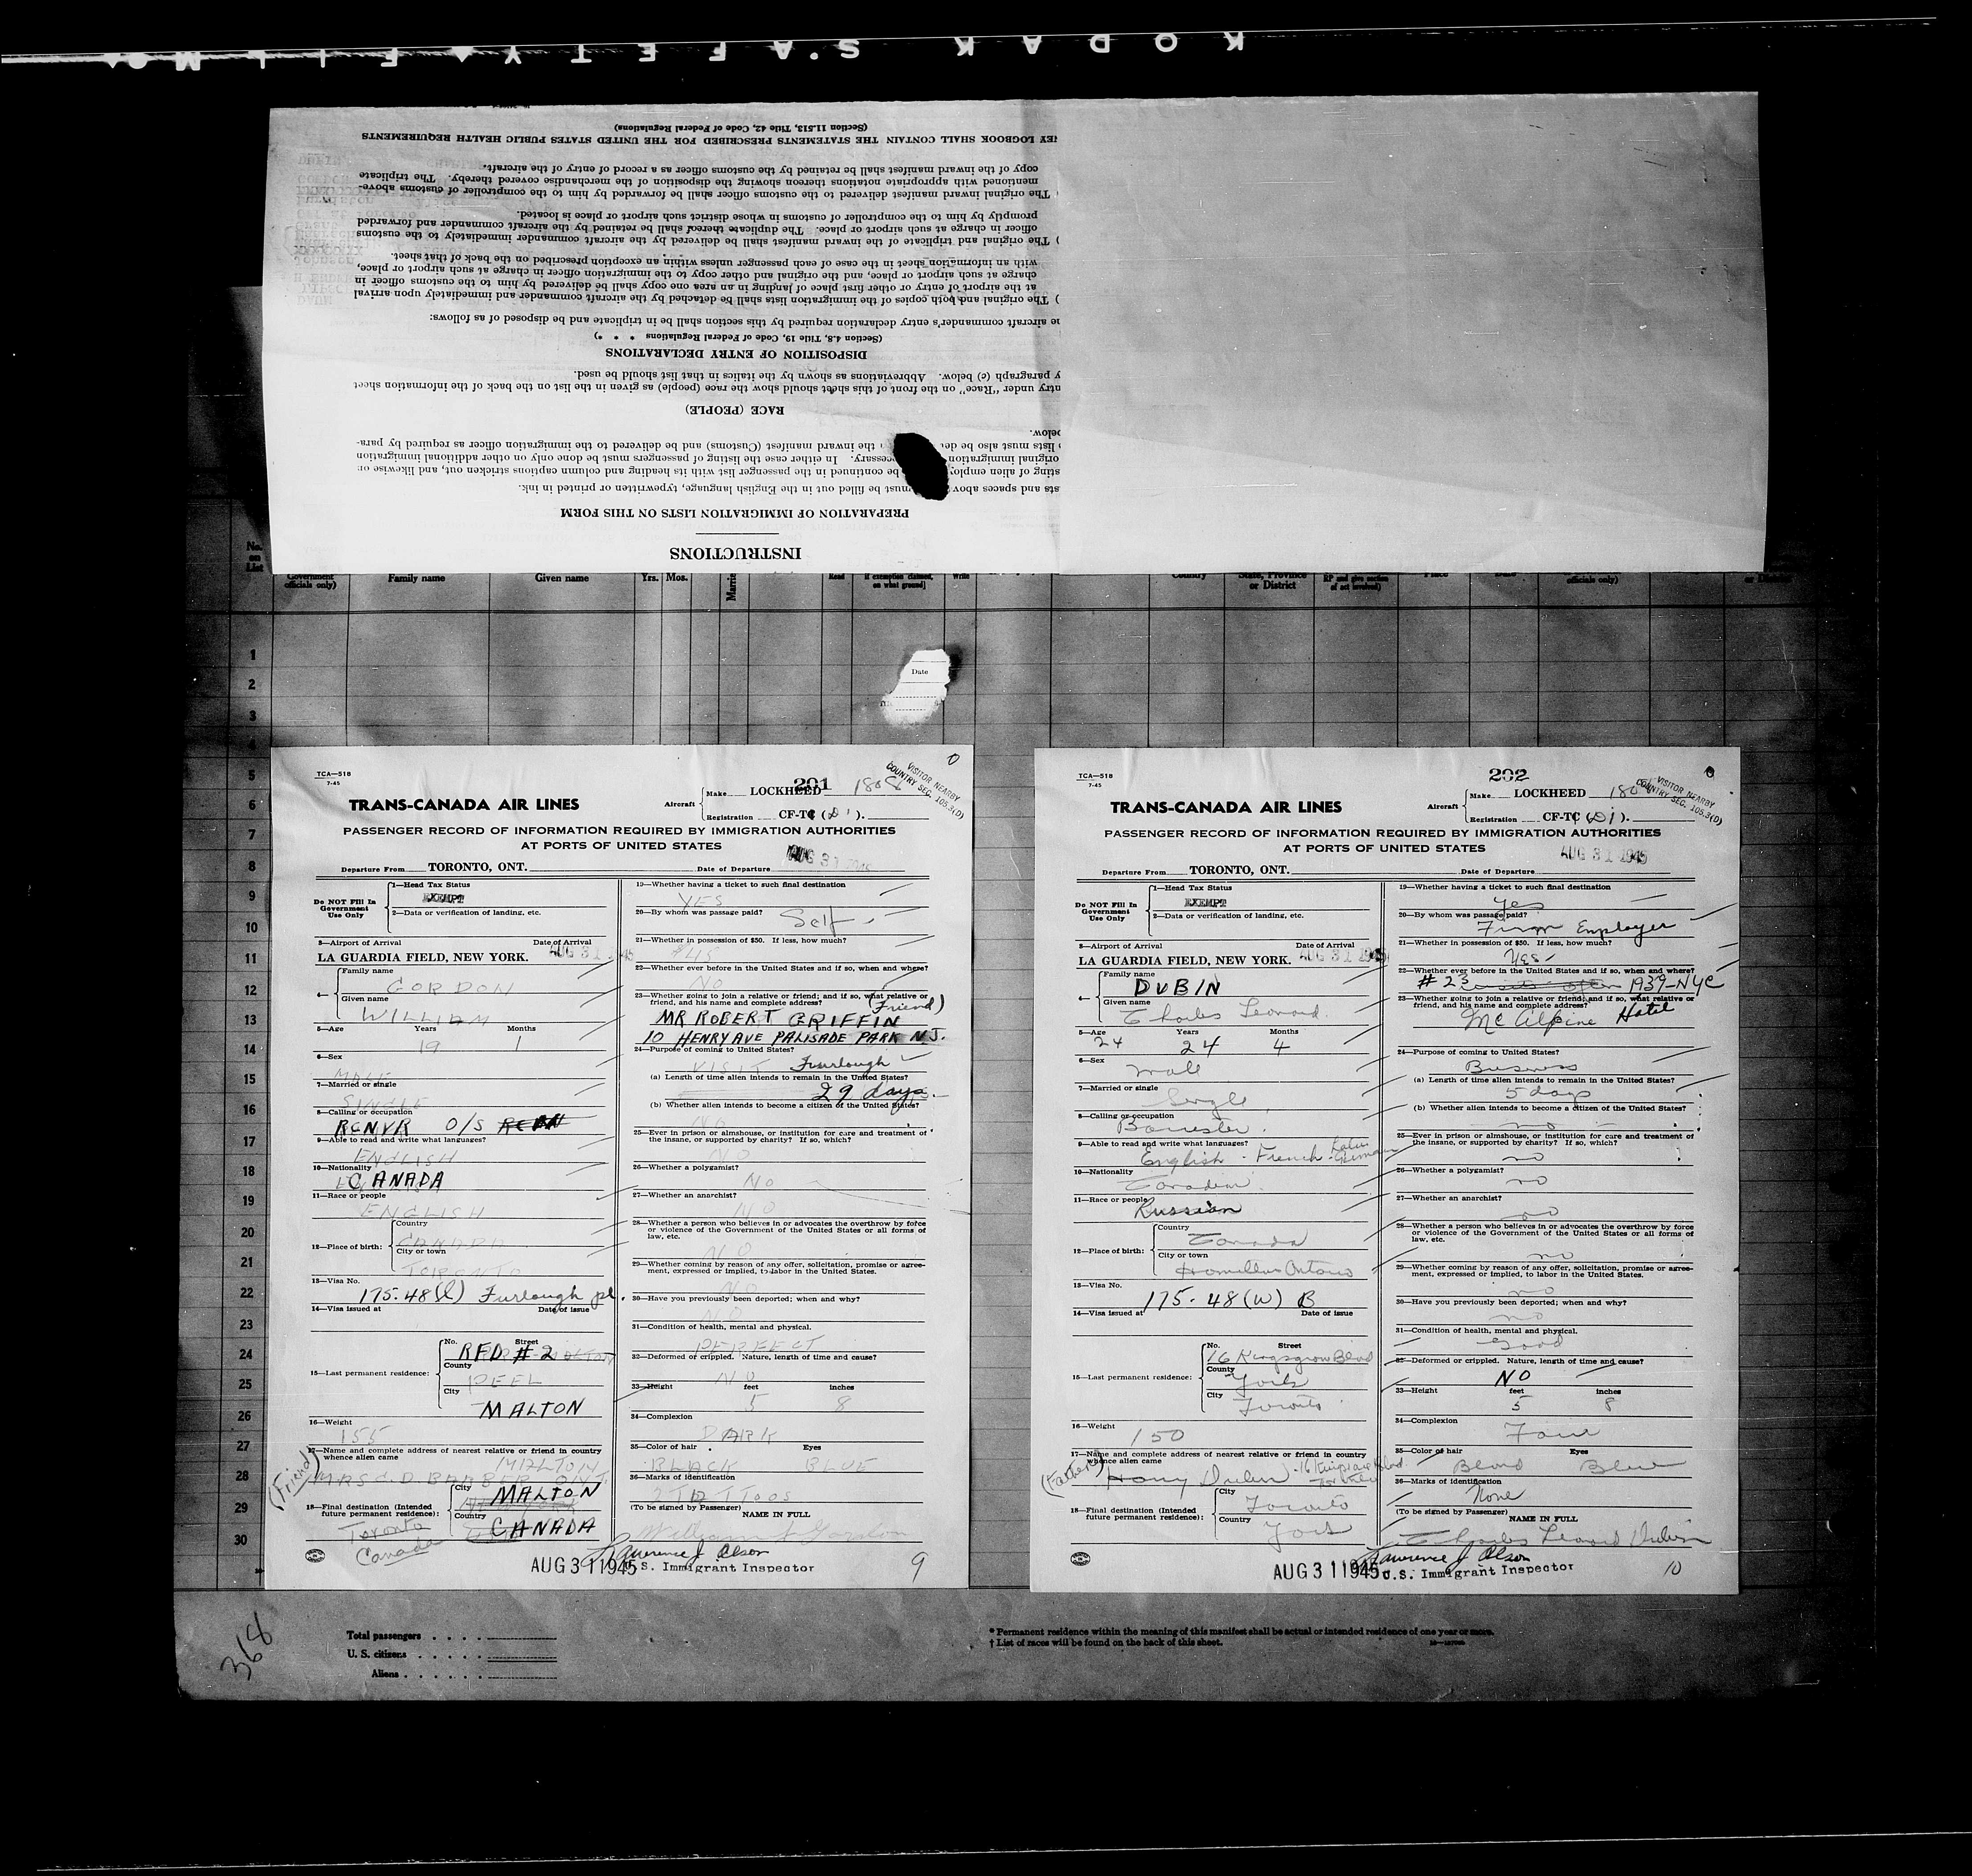 KODAK SAFETY FILM
INSTRUCTIONS
PREPARATION OF IMMIGRATION LISTS ON THIS FORM
sts and spaces abov must be filled out in the English language, typewritten or printed in ink.
sting of alien employ be continued in the passenger list with its heading and column captions stricken out, and likewise or
original immigration cessary. In either case the listing of passengers must be done only on other additional immigration
lists must also be de the inward manifest (Customs) and be delivered to the immigration officer as required by para-
below.
RACE (PEOPLE)
ntry under "Race" on the front of this sheet should show the race (people) as given in the list on the back of the information sheet
y paragraph (c) below. Abbreviations as shown by the italics in that list should be used.
DISPOSITION OF ENTRY DECLARATIONS
(Section 4.8, Title 19, Code of Federal Regulations * * *)
he aircraft commander's entry declaration required by this section shall be in triplicate and be disposed of as follows:
) The original and both copies of the immigration lists shall be detached by the aircraft commander and immediately upon arrival
at the airport of entry or other first place of landing in an area one copy shall be delivered by him to the customs officer in
charge at such airport or place, and the original and other copy to the immigration officer in charge at such airport or place,
with an information sheet in the case of each passenger unless within an exception prescribed on the back of that sheet.
) The original and triplicate of the inward manifest shall be delivered by the aircraft commander immediately to the customs
officer in charge at such airport or place. The duplicate thereof shall be retained by the aircraft commander and forwarded
promptly by him to the comptroller of customs in whose district such airport or place is located.
) The original inward manifest delivered to the customs officer shall be forwarded by him to the comptroller of customs above-
mentioned with appropriate notations thereon showing the disposition of the merchandise covered thereby. The triplicate
copy of the inward manifest shall be retained by the customs officer as a record of entry of the aircraft.
EY LOGBOOK SHALL CONTAIN THE STATEMENTS PRESCRIBED FOR THE UNITED STATES PUBLIC HEALTH REQUIREMENTS
(Section 11.513, Title 42, Code of Federal Regulations)
No. on List
Government officials only) Family name Given name Yrs. Mos. Read If exemption claimed, on what ground] Write Country State, Province or District Place Date officials only) or District
Date
1
2
3
4
5
6
7
8
9
10
11
12
13
14
15
16
17
18
19
20
21
22
23
24
25
26
27
28
29
30
TCA—518
7-45
201
VISITOR NEARBY
COUNTRY SEC. 105.3(D)
TRANS-CANADA AIR LINES
Aircraft Make LOCKHEED 1808
Registration CF-TC (D1).
PASSENGER RECORD OF INFORMATION REQUIRED BY IMMIGRATION AUTHORITIES
AT PORTS OF UNITED STATES
Departure From TORONTO, ONT. Date of Departure AUG 31 1945
Do NOT Fill In Government Use Only
1—Head Tax Status
EXEMPT
2—Data or verification of landing, etc.
3—Airport of Arrival Date of Arrival
LA GUARDIA FIELD, NEW YORK. AUG 31 1945
4— Family name
GORDON
Given name
WILLIAM
5—Age Years Months
19 1
6—Sex
MALE
7—Married or single
SINGLE
8—Calling or occupation
RCNVR O/S
9—Able to read and write what languages?
ENGLISH
10—Nationality
CANADA
11—Race or people
ENGLISH
12—Place of birth: Country
CANADA
City or town
TORONTO
13—Visa No.
175.48(l) Furlough pl.
14—Visa issued at Date of issue
15—Last permanent residence: No. Street
RFD #2
County
PEEL
City
MALTON
16—Weight
155
17—Name and complete address of nearest relative or friend in country whence alien came
(Friend)
MRS C. D. BARBER ONT
18—Final destination (Intended future permanent residence): City
MALTON
Country
CANADA
Toronto
Canada
19—Whether having a ticket to such final destination
YES
20—By whom was passage paid?
Self
21—Whether in possession of $50. If less, how much?
22—Whether ever before in the United States and if so, when and where?
NO
23—Whether going to join a relative or friend; and if so, what relative or friend, and his name and complete address?
(Friend)
MR ROBERT GRIFFIN
10 HENRY AVE PALISADE PARK N.J.
24—Purpose of coming to United States?
VISIT Furlough
(a) Length of time alien intends to remain in the United States?
29 days
(b) Whether alien intends to become a citizen of the United States?
NO
25—Ever in prison or almshouse, or institution for care and treatment of the insane, or supported by charity? If so, which?
NO
26—Whether a polygamist?
NO
27—Whether an anarchist?
NO
28—Whether a person who believes in or advocates the overthrow by force or violence of the Government of the United States or all forms of law, etc.
NO
29—Whether coming by reason of any offer, solicitation, promise or agreement, expressed or implied, to labor in the United States.
NO
30—Have you previously been deported; when and why?
NO
31—Condition of health, mental and physical.
PERFECT
32—Deformed or crippled. Nature, length of time and cause?
NO
33—Height feet inches
5 8
34—Complexion
DARK
35—Color of hair Eyes
BLACK BLUE
36—Marks of identification
(To be signed by Passenger) NAME IN FULL
William Gordon
AUG 31 1945 Lawrence J. Olson
U.S. Immigrant Inspector 9
TCA—518
7-45
202
VISITOR NEARBY
COUNTRY SEC. 105.3(D)
TRANS-CANADA AIR LINES
Aircraft Make LOCKHEED 1808
Registration CF-TC (D1).
PASSENGER RECORD OF INFORMATION REQUIRED BY IMMIGRATION AUTHORITIES
AT PORTS OF UNITED STATES
AUG 31 1945
Departure From TORONTO, ONT. Date of Departure
Do NOT Fill In Government Use Only
1—Head Tax Status
EXEMPT
2—Data or verification of landing, etc.
3—Airport of Arrival Date of Arrival
LA GUARDIA FIELD, NEW YORK. AUG 31 1945
4— Family name
DUBIN
Given name
Charles Leonard
5—Age Years Months
24 24 4
6—Sex
Male
7—Married or single
Single
8—Calling or occupation
Barrister
9—Able to read and write what languages?
English - French - Latin German
10—Nationality
Canadian
11—Race or people
Russian
12—Place of birth: Country
Canada
City or town
Hamilton Ontario
13—Visa No.
175.48(w) B
14—Visa issued at Date of issue
15—Last permanent residence: No. Street
16 Kingsgrove Blvd
County
York
City
Toronto
16—Weight
150
17—Name and complete address of nearest relative or friend in country whence alien came
(Father)
Harry Dubin
18—Final destination (Intended future permanent residence): City
Toronto
Country
York
19—Whether having a ticket to such final destination
Yes
20—By whom was passage paid?
Firm Employer
21—Whether in possession of $50. If less, how much?
Yes
22—Whether ever before in the United States and if so, when and where?
#23 visits often 1939-NYC
23—Whether going to join a relative or friend; and if so, what relative or friend, and his name and complete address?
McAlpine Hotel
24—Purpose of coming to United States?
Business
(a) Length of time alien intends to remain in the United States?
5 days
(b) Whether alien intends to become a citizen of the United States?
no
25—Ever in prison or almshouse, or institution for care and treatment of the insane, or supported by charity? If so, which?
no
26—Whether a polygamist?
no
27—Whether an anarchist?
no
28—Whether a person who believes in or advocates the overthrow by force or violence of the Government of the United States or all forms of law, etc.
no
29—Whether coming by reason of any offer, solicitation, promise or agreement, expressed or implied, to labor in the United States.
no
30—Have you previously been deported; when and why?
no
31—Condition of health, mental and physical.
Good
32—Deformed or crippled. Nature, length of time and cause?
NO
33—Height feet inches
5 8
34—Complexion
35—Color of hair Eyes
Blond Blue
36—Marks of identification
None
(To be signed by Passenger) NAME IN FULL
Charles Leonard Dubin
AUG 31 1945 Lawrence J. Olson
U.S. Immigrant Inspector 10
368
Total passengers
U. S. citizens
Aliens
* Permanent residence within the meaning of this manifest shall be actual or intended residence of one year or more.
† List of races will be found on the back of this sheet.